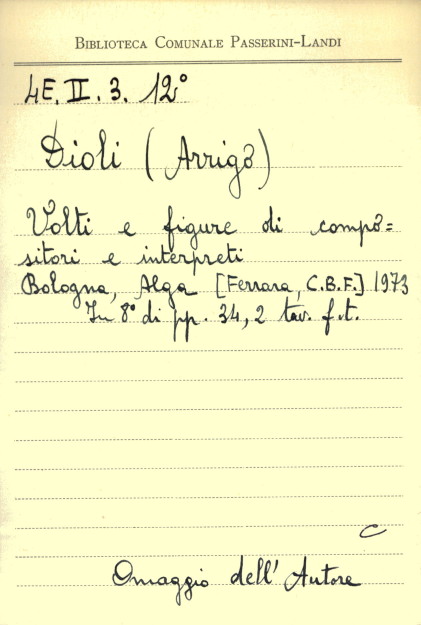 BIBLIOTECA COMUNALE PASSERINI-LANDI
4E. II. 3. 12°
Dioli (Arrigo)
Volti e figure di compo=
sitori e interpreti
Bologna, Alga [Ferrara, C.B.F.] 1973
In 8° di pp. 34, 2 tav. f.t.
C
Omaggio dell' Autore